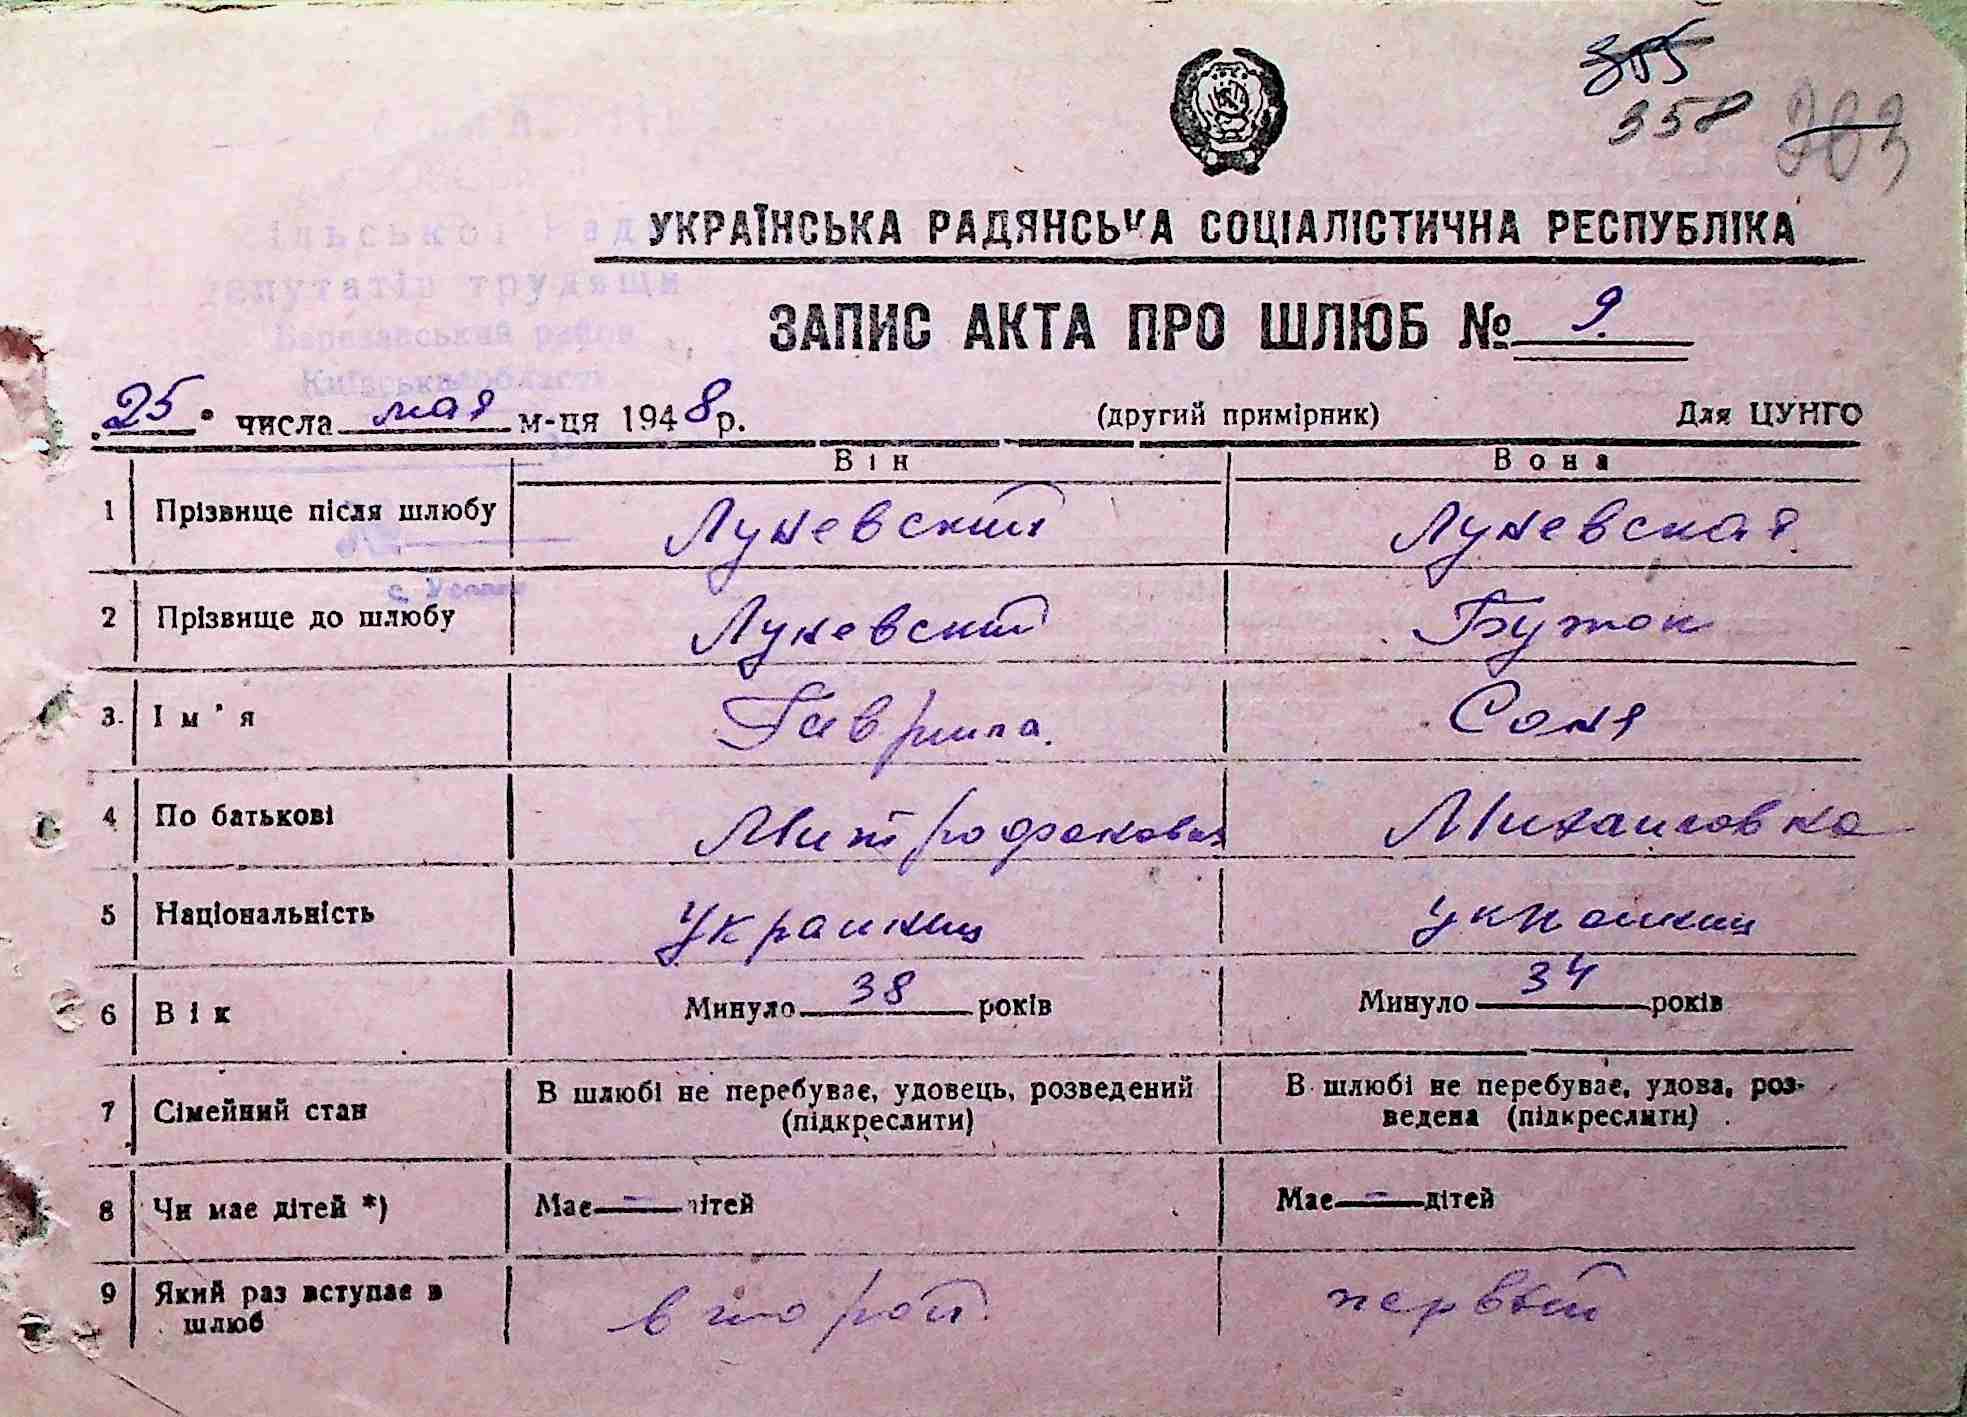 355
358 203
УКРАЇНСЬКА РАДЯНСЬКА СОЦІАЛІСТИЧНА РЕСПУБЛІКА
ЗАПИС АКТА ПРО ШЛЮБ № 9.
25 числа мая м-ця 1948 р. (другий примірник) Для ЦУНГО
Він Вона
1 Прізвище після шлюбу Луневский Луневская
2 Прізвище до шлюбу Луневский Бужок
3. Ім'я Гаврила. Соня
4 По батькові Митрофанович Михаиловна
5 Національність Украинец украинец
6 Вік Минуло 38 років Минуло 34 років
7 Сімейний стан В шлюбі не перебуває, удовець, розведений (підкреслити) В шлюбі не перебуває, удова, роз-
ведена (підкреслити)
8 Чи має дітей *) Має — дітей Має — дітей
9 Який раз вступає в шлюб второй первый
ільської Рад
депутатів трудящи
Київська області